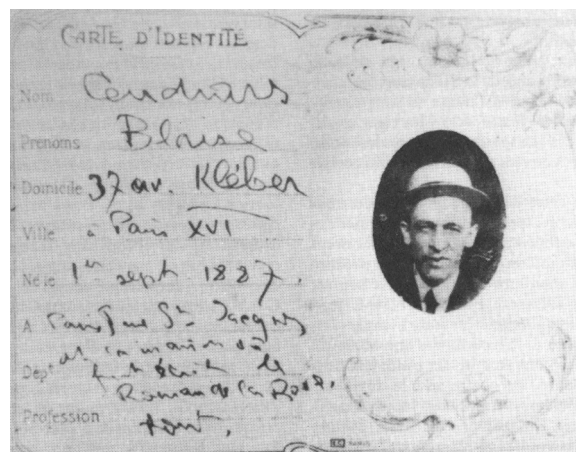 CARTE D'IDENTITÉ
Nom Cendrars
Prenoms Blaise
Domicile 37 av. Kléber
Ville à Paris XVI
Né le 1er sept 1887.
A Paris rue St Jacques
et la maison où
Dept fut écrit le
Roman de la Rose,
Profession tout,